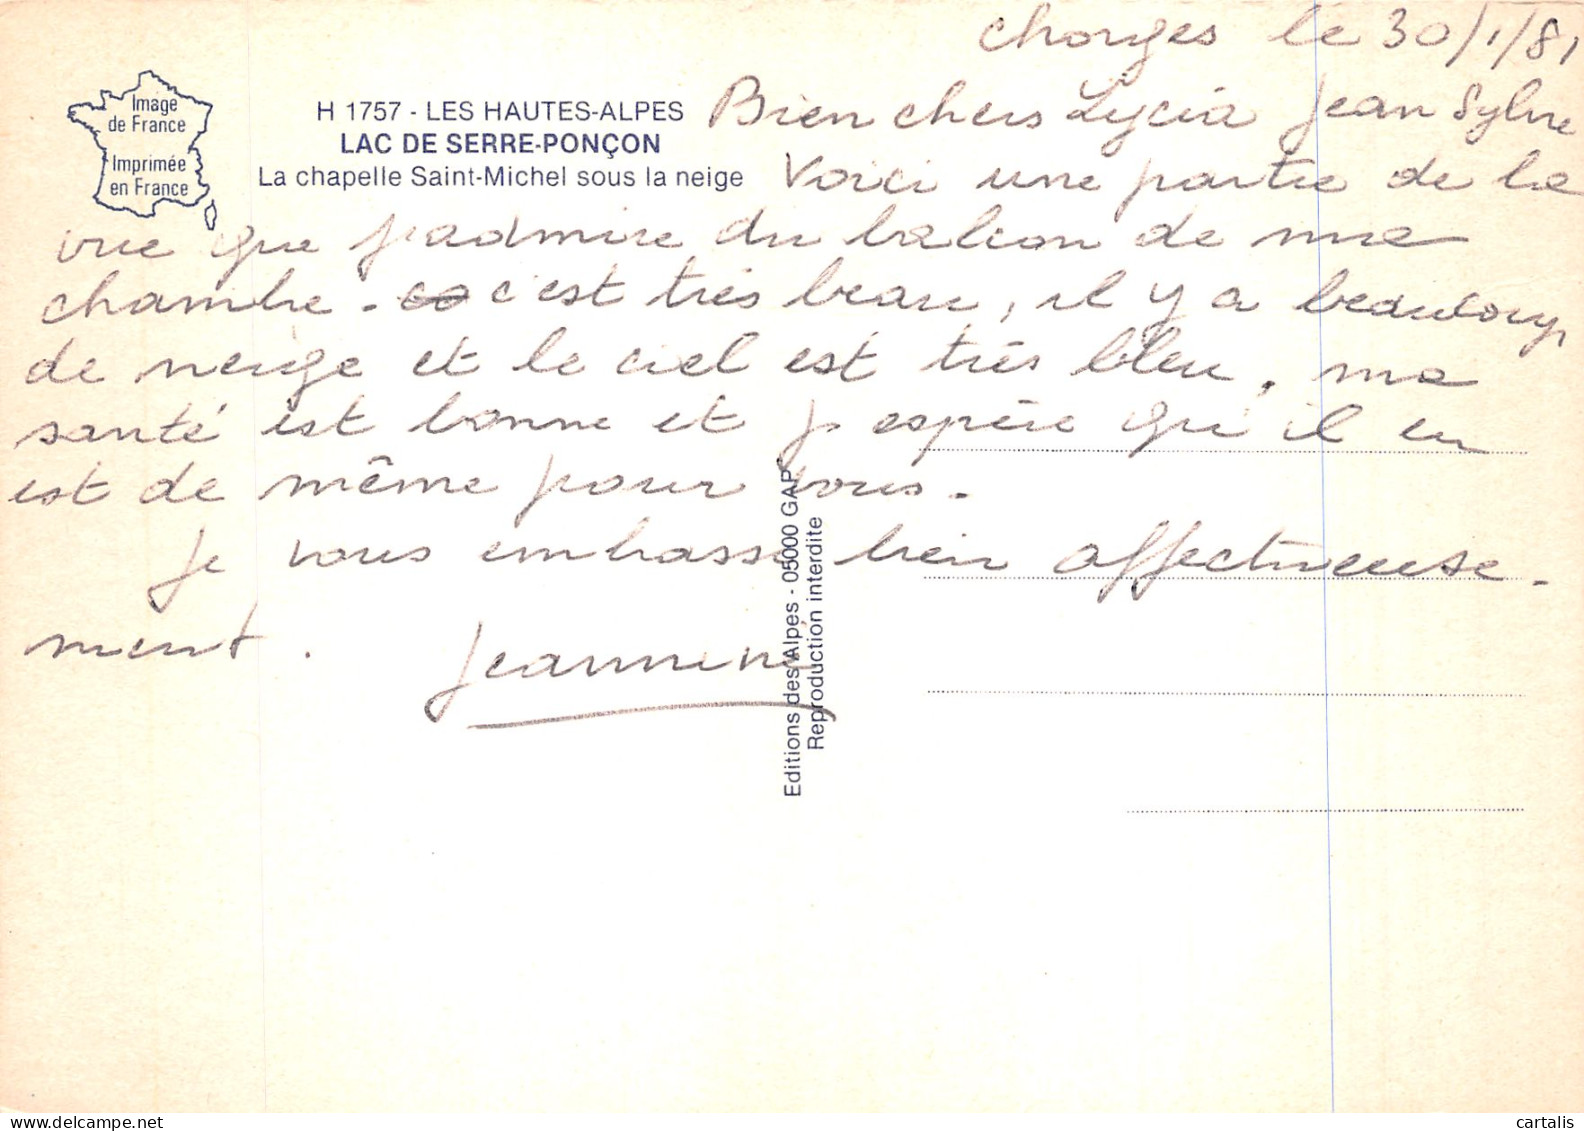 chorges le 30/1/81
Image
de France
Imprimée
en France
H 1757 - LES HAUTES-ALPES
LAC DE SERRE-PONÇON
La chapelle Saint-Michel sous la neige
Bien chers Lycia Jean Sylvie
Voici une partie de la
vue que j'admire du balcon de ma
chambre. c'est très beau, il y a beaucoup
de neige et le ciel est très bleu. ma
santé est bonne et j'espère qu'il en
est de même pour vous.
Je vous embrasse bien affectueuse-
ment.
Jeannine
Editions des Alpes - 05000 GAP
Reproduction interdite
cartalis